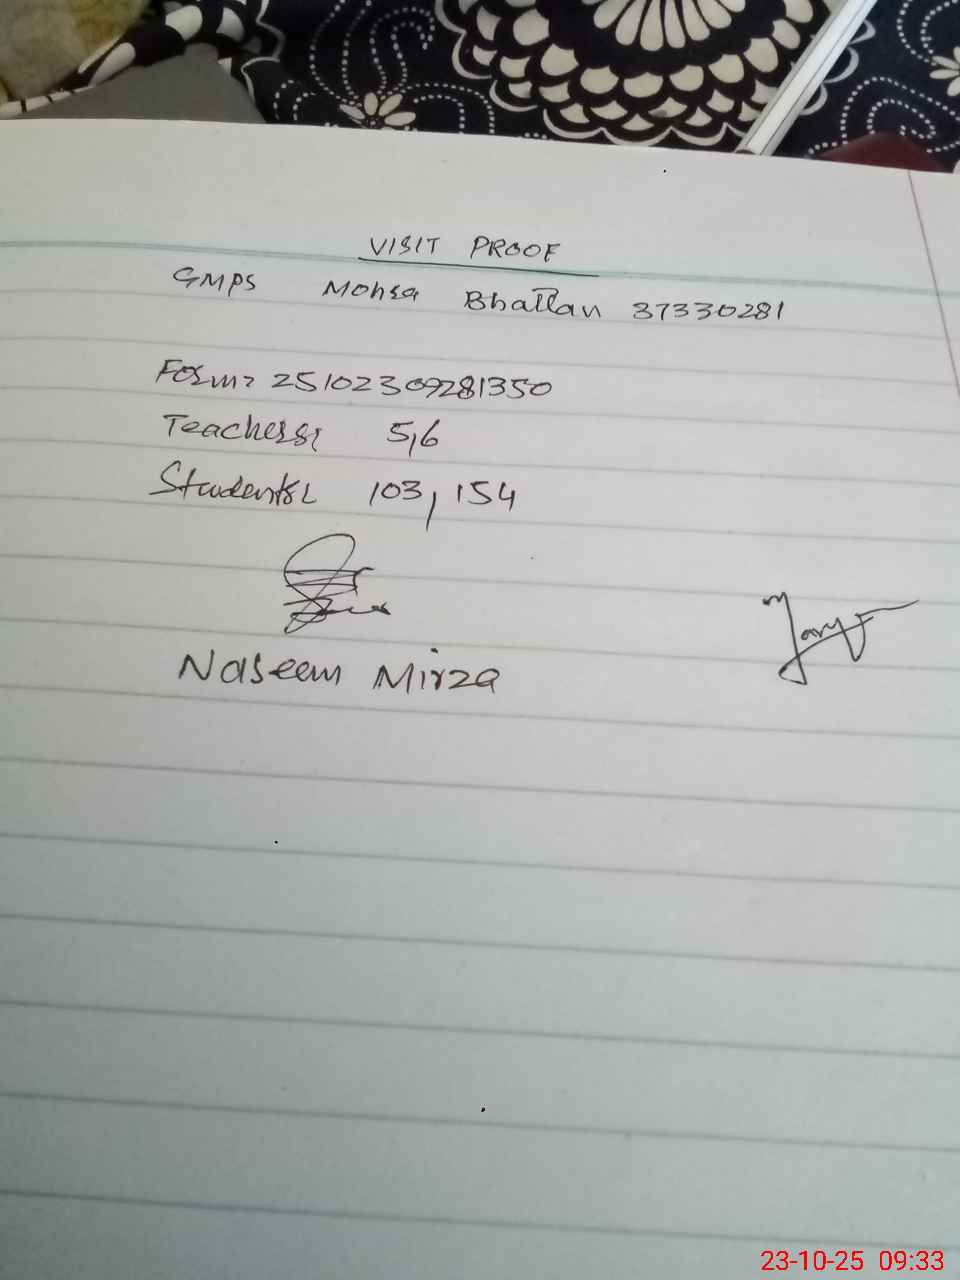 VISIT PROOF
GMPS Mohra Bhattan 37330281
Form: 25102309281350
Teachers: 5,6
Students: 103, 154
Naseem Mirza
23-10-25 09:33